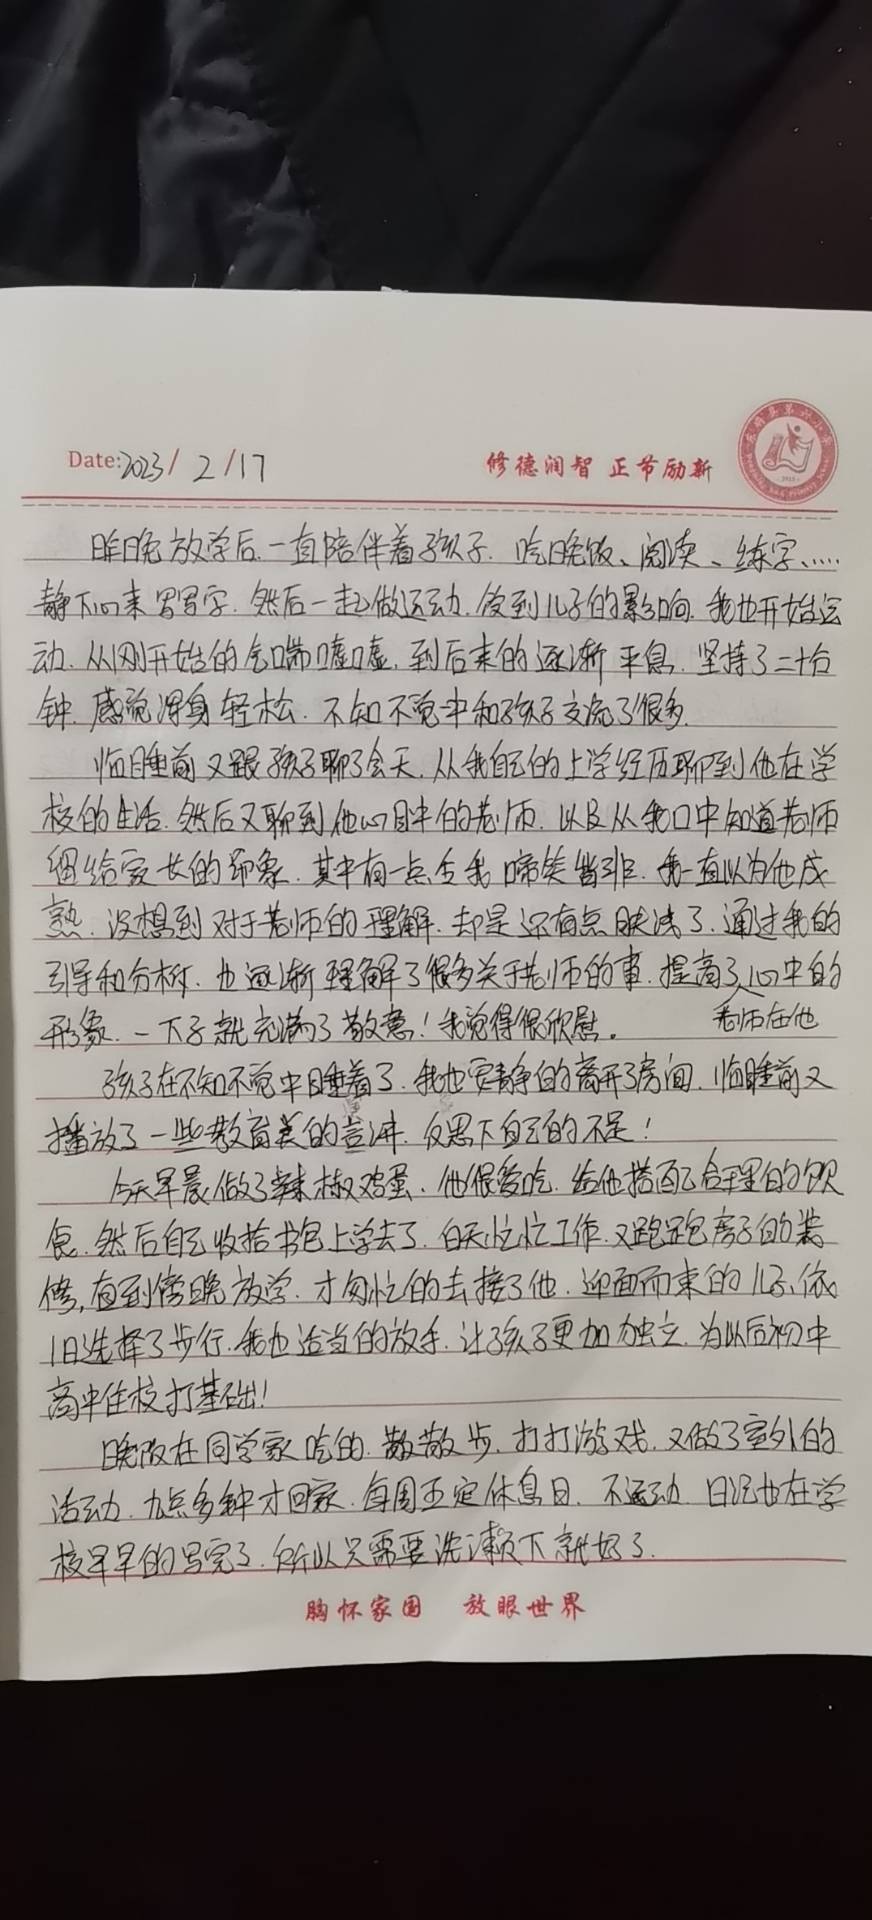 Date:2023/2/17
修德润智 正节励新
昨晚放学后.一直陪伴着孩子.吃晚饭、阅读、练字、……
静下心来写写字.然后一起做运动.受到儿子的影响.我也开始运
动.从刚开始的气喘嘘嘘.到后来的逐渐平息.坚持了二十分
钟.感觉浑身轻松.不知不觉中和孩子交流了很多.
临睡前又跟孩子聊了会天.从我自己的上学经历聊到他在学
校的生活.然后又聊到他心目中的老师.以及从我口中知道老师
给家长的印象.其中有一点令我啼笑皆非.我一直以为他成
熟.没想到对于老师的理解.却是还有点肤浅了.通过我的
引导和分析.也逐渐理解了很多关于老师的事.提高了心中的
老师在他
形象.一下子就充满了敬意!我觉得很欣慰。
孩子在不知不觉中睡着了.我也安静的离开了房间.临睡前又
播放了一些教育类的言讲.反思下自己的不足!
今天早晨做了辣椒鸡蛋.他很爱吃.给他搭配合理的饮
食.然后自己收拾书包上学去了.白天忙忙工作.又跑跑房子的装
修,直到傍晚放学.才匆忙的去接了他.迎面而来的儿子.依
旧选择了步行.我也适当的放手.让孩子更加独立.为以后初中
高中住校打基础!
晚饭在同学家吃的.散散步.打打游戏.又做了室外的
活动.九点多钟才回家.每周五定休息日.不运动.日记也在学
校早早的写完了.所以只需要洗漱下就好了.
胸怀家国 放眼世界